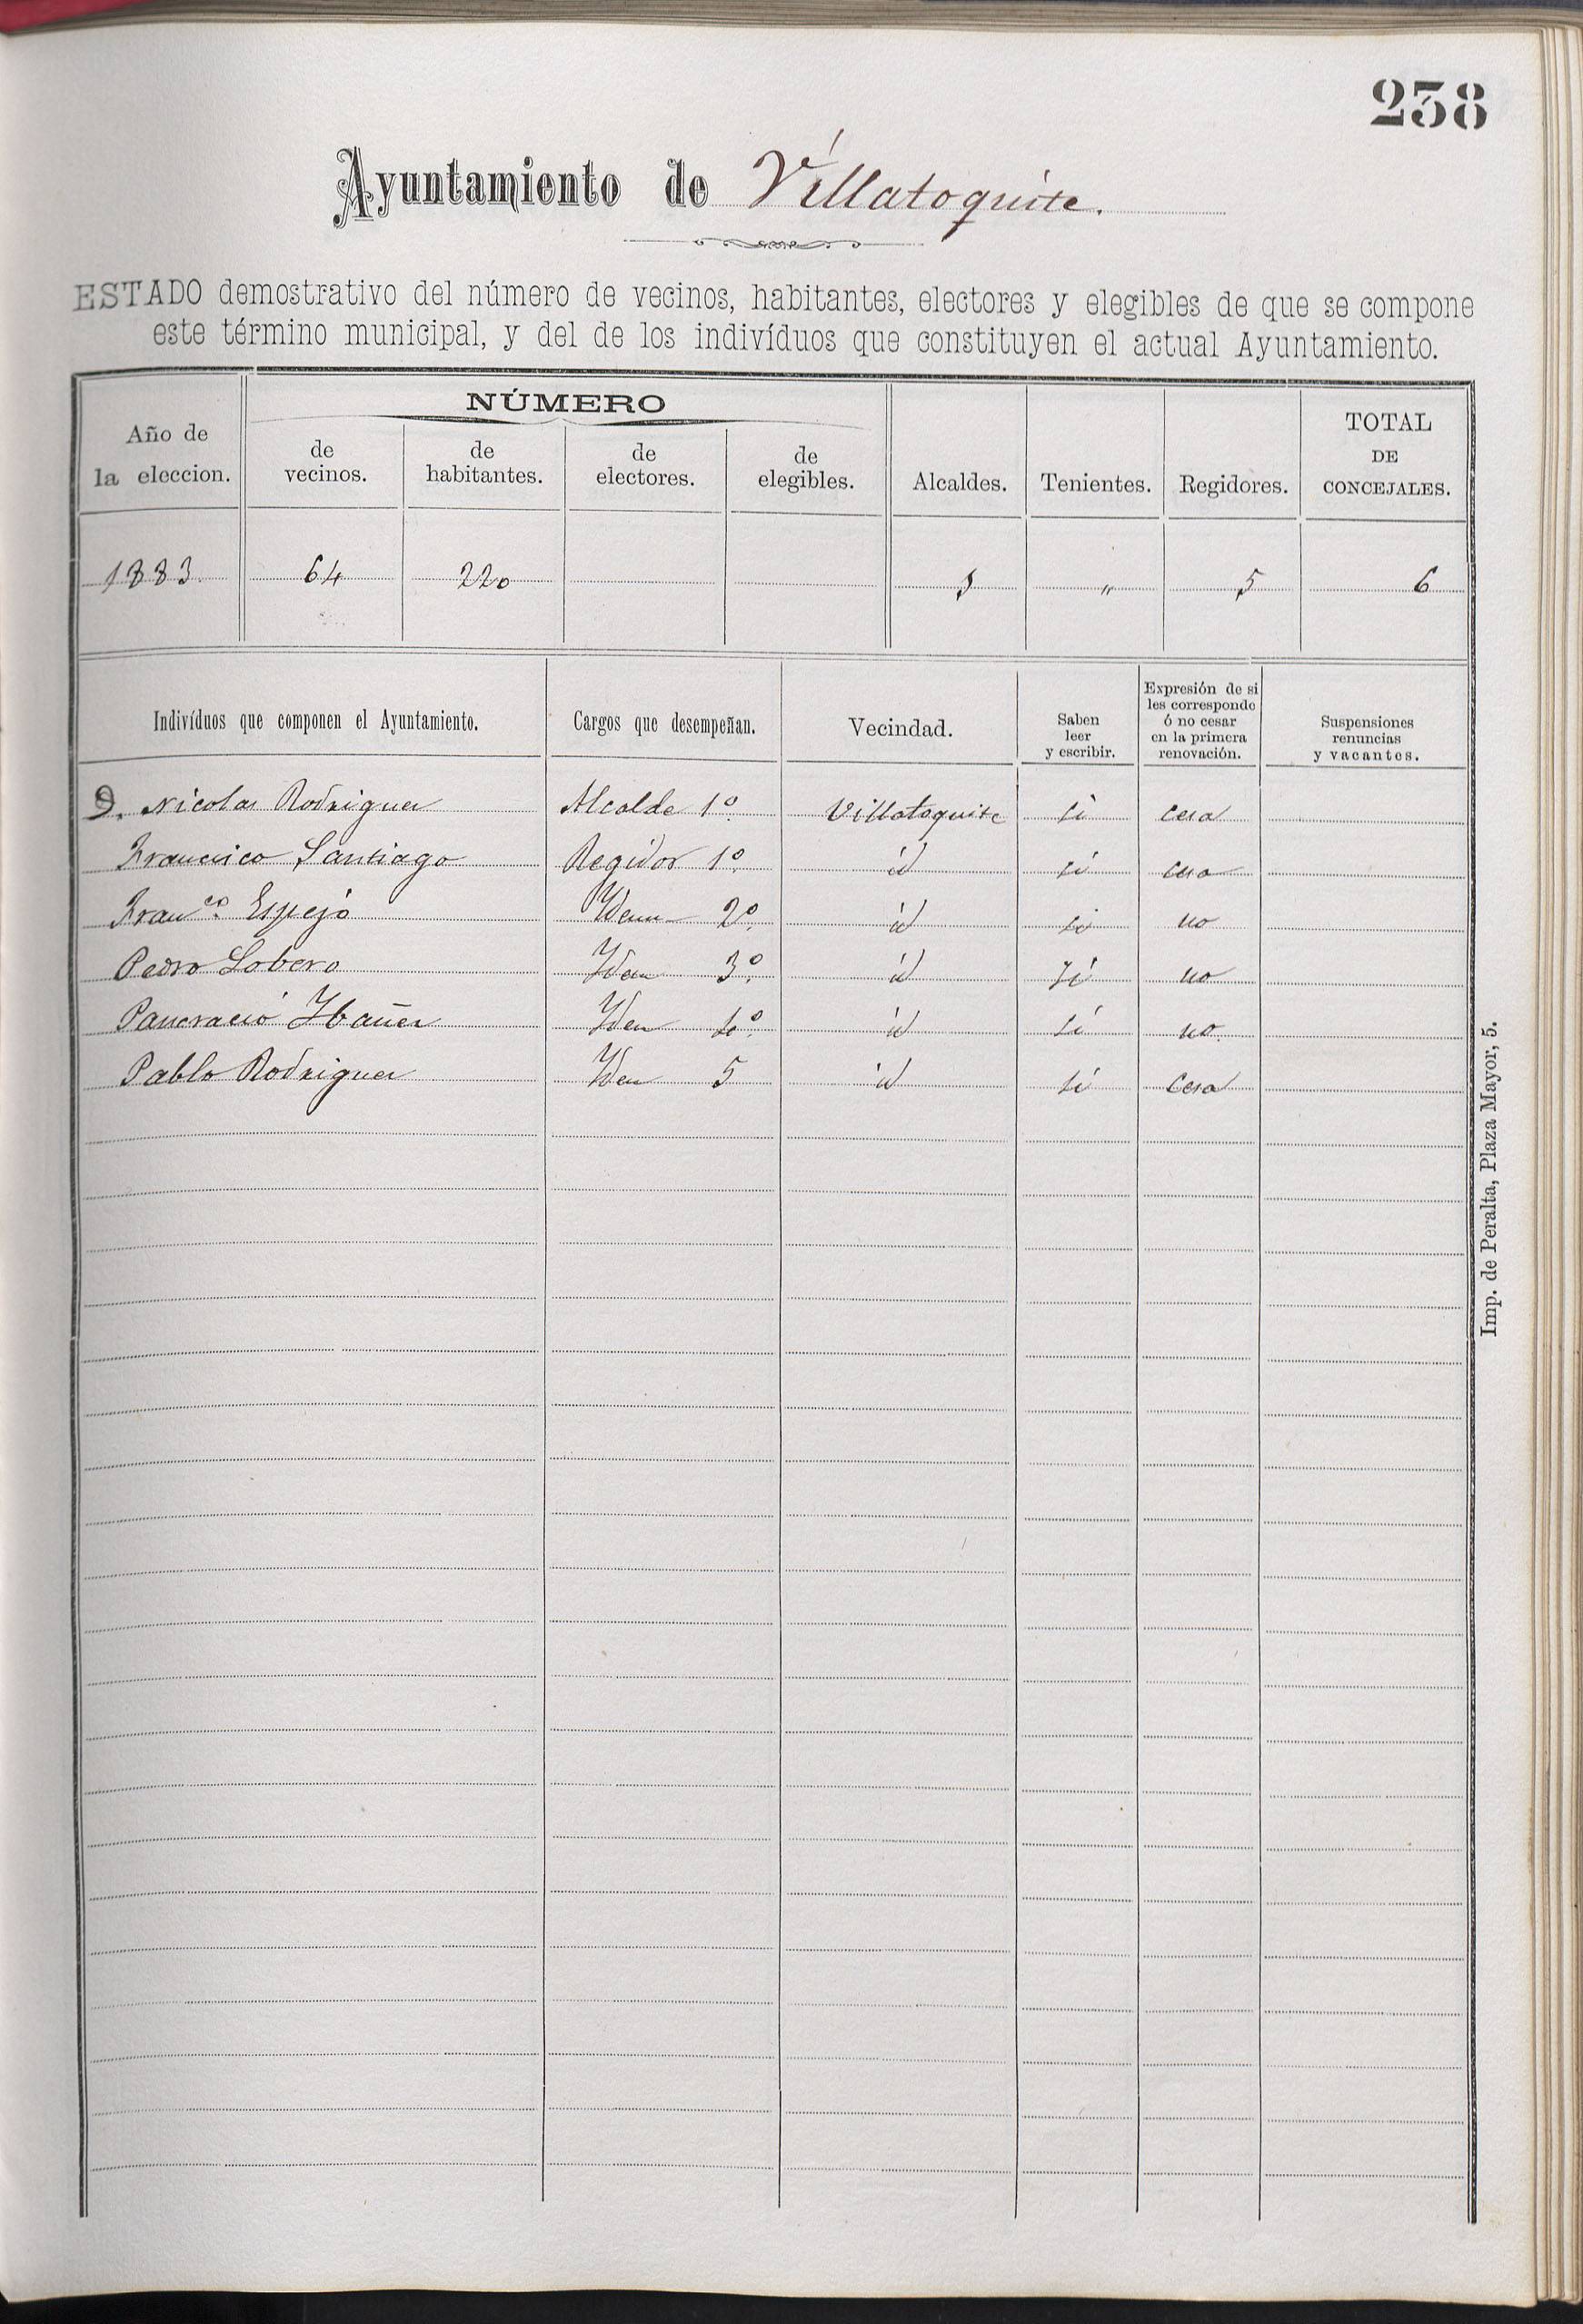 238
Ayuntamiento de Villatoquite.
ESTADO demostrativo del número de vecinos, habitantes, electores y elegibles de que se compone
este término municipal, y del de los indivíduos que constituyen el actual Ayuntamiento.
Año de la eleccion. NÚMERO de vecinos. de habitantes. de electores. de elegibles. Alcaldes. Tenientes. Regidores. TOTAL DE CONCEJALES.
1883. 64 220 1 " 5 6
Indivíduos que componen el Ayuntamiento. Cargos que desempeñan. Vecindad. Saben leer y escribir. Expresión de si les corresponde ó no cesar en la primera renovación. Suspensiones renuncias y vacantes.
D. Nicolas Rodriguez Alcalde 1º Villatoquite si cesa
Francisco Santiago Regidor 1º id si cesa
Franco. Espejo Idem 2º id si no
Pedro Lobero Idem 3º id si no
Pancracio Ibañez Idem 4º id si no
Pablo Rodriguez Idem 5 id si Cesa
Imp. de Peralta, Plaza Mayor, 5.